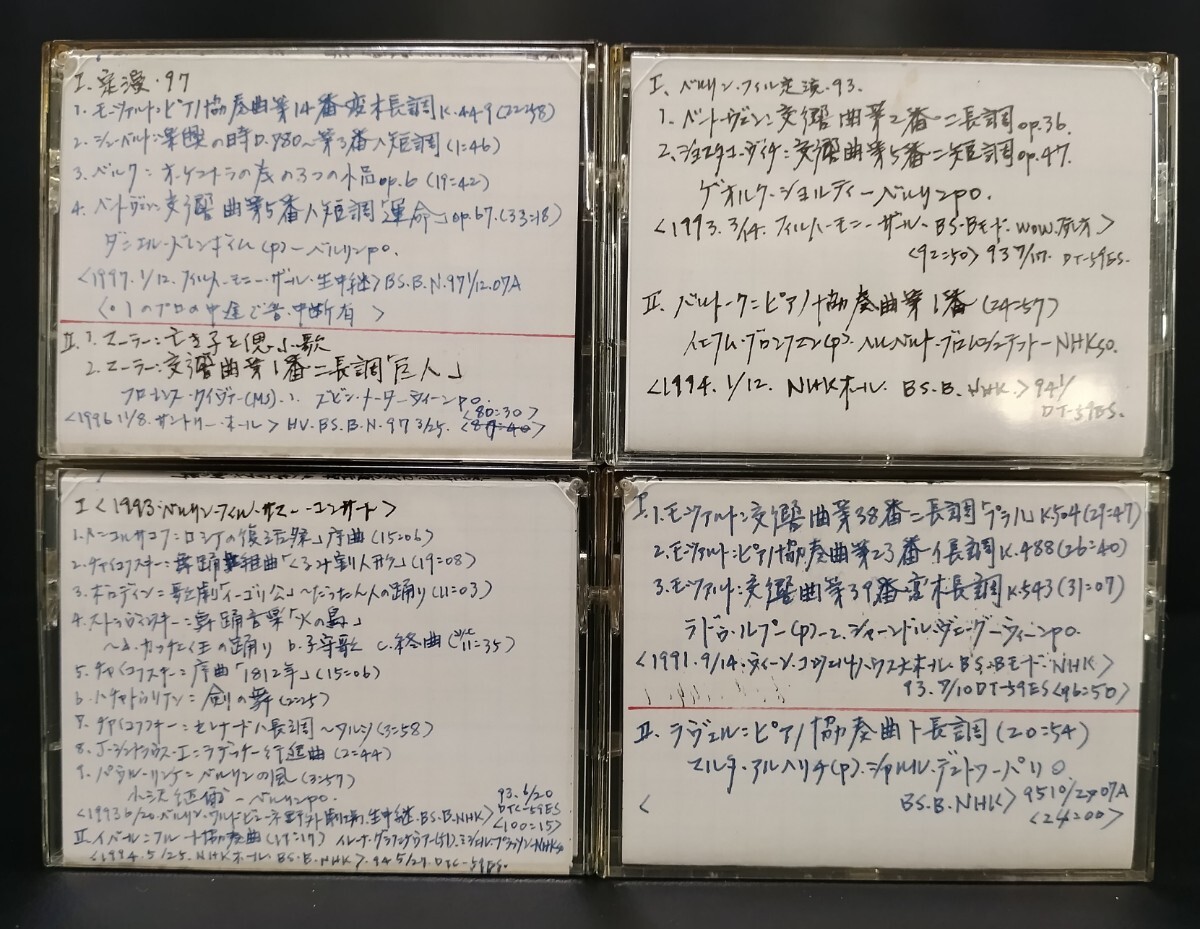 I. 定演・97
1. モーツァルト:ピアノ協奏曲第14番変ホ長調K.449(22=58)
2. シューベルト:楽興の時D.780〜第3番ヘ短調(1=46)
3. ベルク:オーケストラの為の3つの小品op.6(19=42)
4. ベートヴェン:交響曲第5番ハ短調「運命」op.67.(33=18)
ダニエル・バレンボイム(p)ーベルリンpo.
<1997.1/12.フィルハーモニー・ザール・生中継>BS.B.N.97 1/12.07A
<○1のプロの中途で音・中断有>
II. 1. マーラー:亡き子を偲ぶ歌
2. マーラー:交響曲第1番ニ長調「巨人」
フローレンス・クイヴァー(MS).、ズビン・メーターーウィーンpo.
<80=30>
<1996 11/8.サントリー・ホール>HV.BS.B.N.97 3/25.
I、ベルリン・フィル定演・93.
1. ベートーヴェン:交響曲第2番ニ長調op.36.
2. ショスタコーヴィチ:交響曲第5番ニ短調op.47.
ゲオルク・ショルティーベルリンpo.
<1993.3/14.フィルハーモニー・ザール・BS・Bモード・WOWOW>
<92=50> 93 7/17. DT-59ES.
II. バルトーク:ピアノ協奏曲第1番(24=57)
イエフム・ブロンフマン(p).ヘルベルト・ブロムシュテットーNHKso.
<1994.1/12. NHKホール. BS.B. NHK.> 94 1/
DT-59ES.
I <1993・ベルリン・フィル・サマー・コンサート>
1. R=コルサコフ:ロシアの復活祭」序曲(15=06)
2. チャイコフスキー:舞踊組曲「くるみ割り人形」(19=08)
3. ボロディン:歌劇「イーゴリ公」〜だったん人の踊り(11=03)
4. ストラヴィンスキー:舞踊音楽「火の鳥」
〜a.カッチェイ王の踊り b.子守歌 c.終曲(11=35)
5. チャイコフスキー:序曲「1812年」(15=06)
6. ハチャトゥリアン:剣の舞(2=25)
7. チャイコフスキー:セレナードハ長調〜ワルツ(3=58)
8. J・シュトラウス・I:ラデツキー行進曲(2=44)
9. パウル・リンケ:ベルリンの風(3=57)
小沢征爾ーベルリンpo.
93.6/20
DTC-59ES
<1993 6/20.ベルリン・ワルトビューネ野外劇場・生中継.BS.B.NHK> <100=15>
II. イベール:フルート協奏曲(19=17) イレーナ・グラフェナウアー(fl).ミシェル・プラッソンーNHKso
<1994.5/25.NHKホール.BS.B.NHK>.94 5/27.DTC-59ES.
I. 1. モーツァルト:交響曲第38番ニ長調「プラハ」K.504(29=47)
2. モーツァルト:ピアノ協奏曲第23番イ長調K.488(26=40)
3. モーツァルト:交響曲第39番変ホ長調K.543(31=07)
ラドゥ・ルプー(p)ー2.シャーンドル・ヴェーグーウィーンpo.
<1991.9/14.ウィーン・コンツェルトハウス大ホール.BS.Bモード.NHK>
93.7/10 DT-59ES <96=50>
II. ラヴェル:ピアノ協奏曲ト長調(20=54)
マルタ・アルヘリチ(p).シャルル・デュトワーパリO.
< BS.B.NHK> 95 10/27 07A
<24=00>